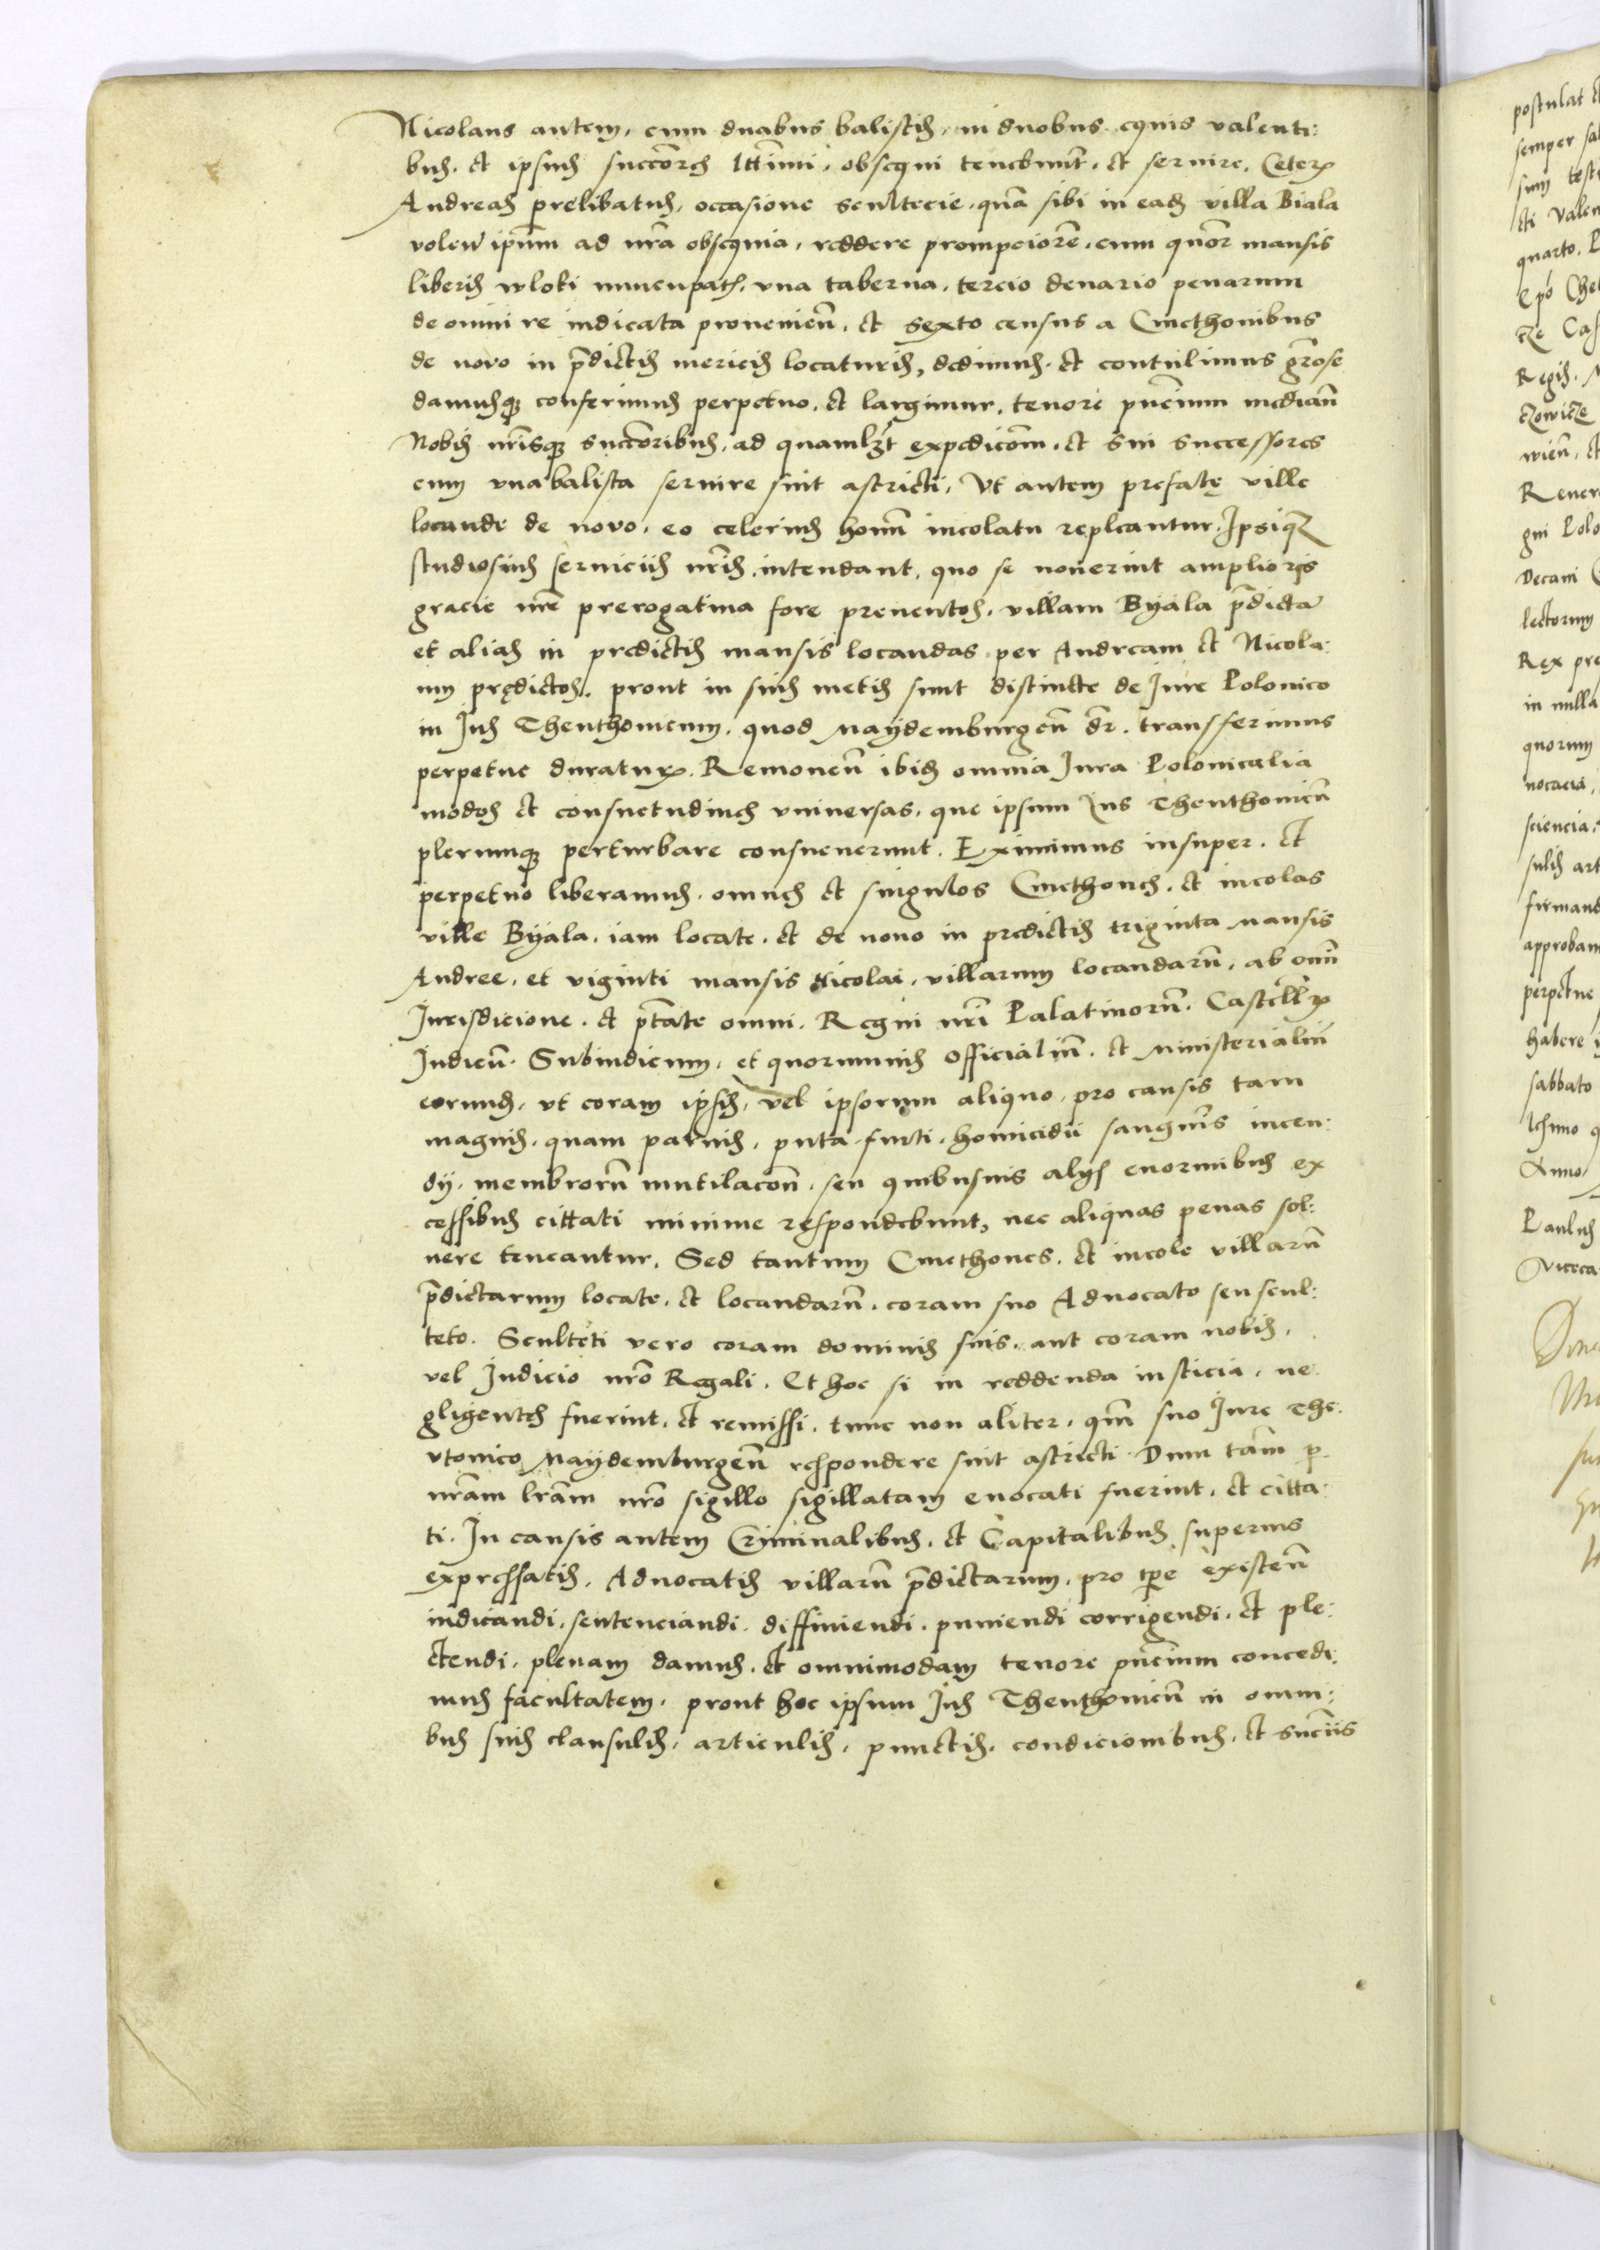 Nicolaus autem, cum duabus balistis, in duobus equis valenti:
bus. et ipsius succōres lttimi, obsequi tenebunt. et seruire. Ceterꝝ
Andreas prelibatus, occasione scultecie, quā sibi in eadꝫ villa Biala
volen̄ ipm̄ ad nr̄a obsequia, reddere prompciorē, cum quōr mansis
liberis wloki nuncupatꝭ. vna taberna, tercio denario penarum
de omni re iudicata prouenien̄, et sexto census a Cmethonibus
de nouo in p̄dictis mericis locaturis, dedimus. et contulimus gr̄ose
damusqꝫ conferimus perpetuo. et largimur, tenore pn̄cium mediān
Nobis nr̄isqꝫ succōribus, ad quamlꝫt expedicōm. et sui successores
cum vna balista seruire sint astricti, Vt autem prefatę ville
locande de nouo, eo celerius hom̄ incolatu repleantur, Ipsiqꝫ
studiosius seruiciis nr̄is intendant, quo se nouerint amplioris
gracie nr̄e prerogatiua fore preuentos, villam Byala p̄dictā
et alias in predictis mansis locandas per Andream et Nicola:
um prędictos. prout in suis metis sunt distincte de Jure Polonico
in Jus Theuthonicum, quod Maydemburgen̄ dr̄. transferimus
perpetue duraturꝝ. Remouen̄ ibidꝫ omnia Jura Polonicalia
modos et consuetudines vniuersas, que ipsum Jus Theuthonicū
plerumqꝫ perturbare consueuerunt. Eximimus insuper. et
perpetuo liberamus, omnes et singulos Cmethones. et incolas
ville Byala, iam locate. et de nouo in predictis triginta mansis
Andree, et viginti mansis Nicolai, villarum locandarū, ab omī
Jurisdicione. et ptāte omni. Regni nrī Palatinorū. Castellꝝ
Judicū. Subiudicum, et quorumuis officialiū. et Ministerialiū
eorundꝫ, vt coram ipsis, vel ipsorum aliquo, pro causis tam
magnis, quam paruis, puta furti, homicidii sangu͞is incen:
dij, membrorū mutilacōn̄, seu quibusuis alijs enormibus ex
cessibus cittati minime respondebunt, nec aliquas penas sol:
uere teneantur. Sed tantum Cmethones. et incole villarū
p̄dictarum locate, et locandarū, coram suo Aduocato seu scul:
teto. Sculteti vero coram dominis suis, aut coram nobis,
vel Judicio nr̄o Regali. Et hoc si in reddenda iusticia, ne
gligentes fuerint, et remissi, tunc non aliter, qm̄ suo Jure The:
vtonico Maydemburgen̄ respondere sint astricti. Dum tām p̱
nr̄am lr̄am nr̄o sigillo sigillatam euocati fuerint, et citta:
ti. In causis autem Criminalibus, et Capitalibus superius
expressatis, Aduocatis villarū p̄dictarum, pro tp̄e existen̄
iudicandi, sentenciandi, diffiniendi, puniendi corrigendi, et ple:
ctendi, plenam damus, et omnimodam tenore pn̄cium concedi:
mus facultatem, prout hoc ipsum Jus Theuthonicū in omni:
bus suis clausulis, articulis, punctis, condicionibus, et sn̄ciis
postulat
semper
quarto.
Regis.
lectorum
Rex
in nulla
quorum
sciencia
perpetue
habere
sabbato
Anno
Paulus